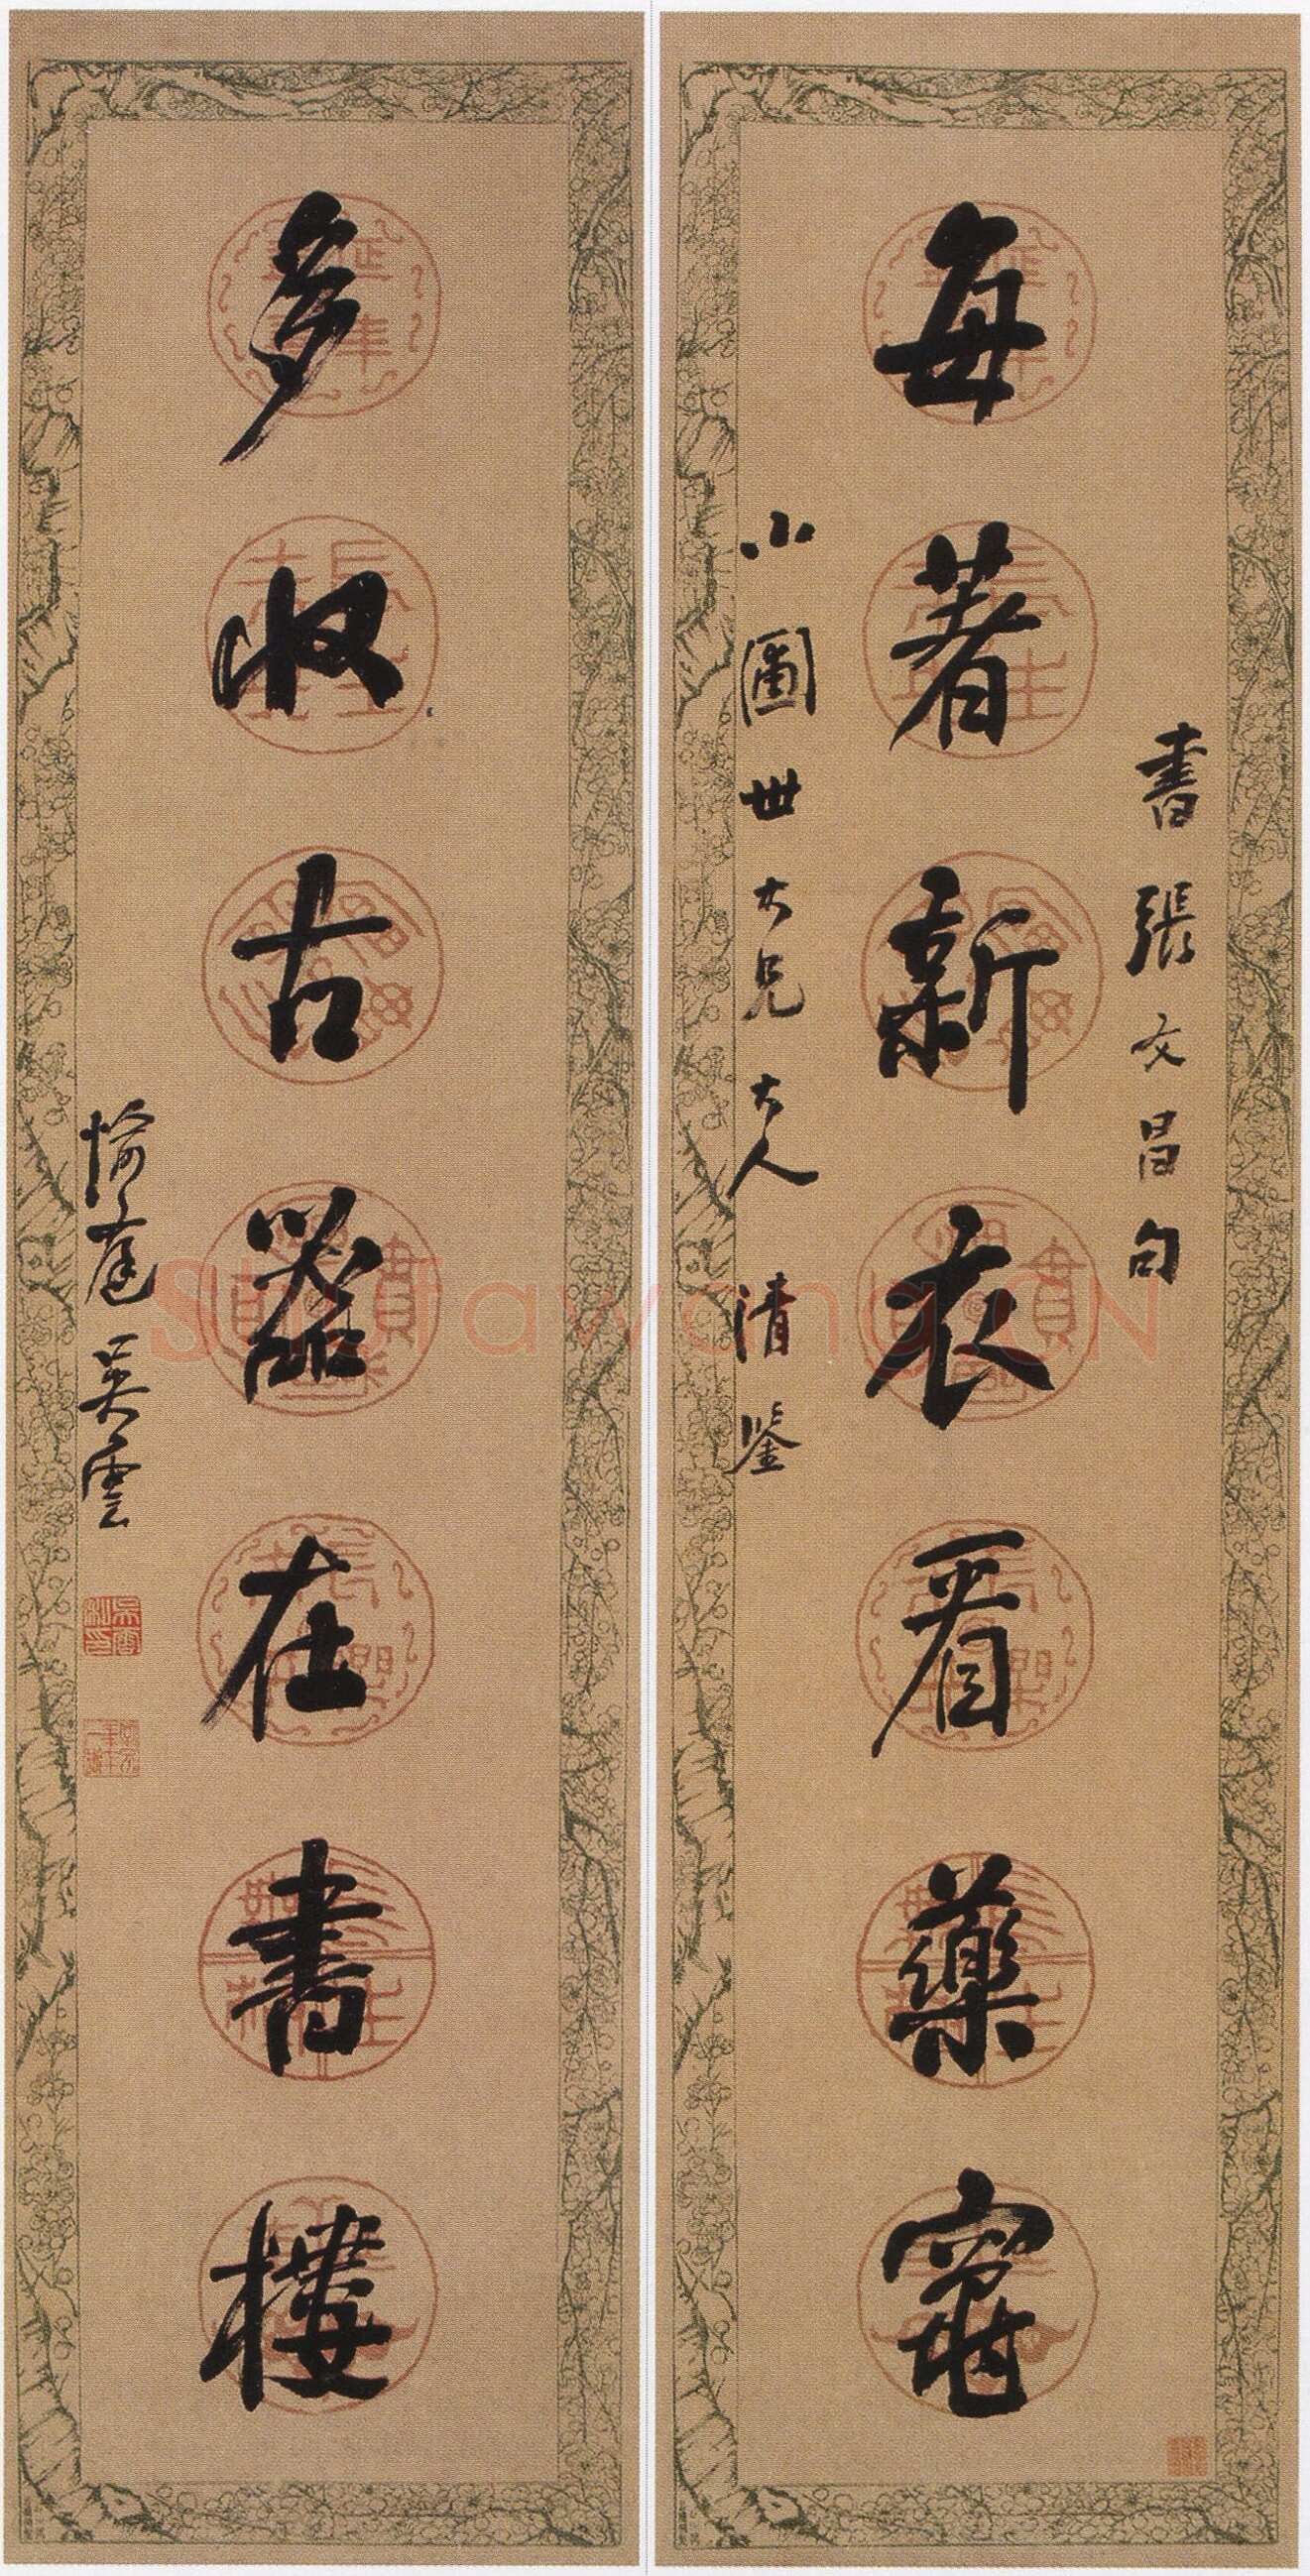 書張文昌句
每著新衣看藥竈
小圃世大兄大人清鑒
多收古器在書樓
愉庭吳雲
ShufawangCN